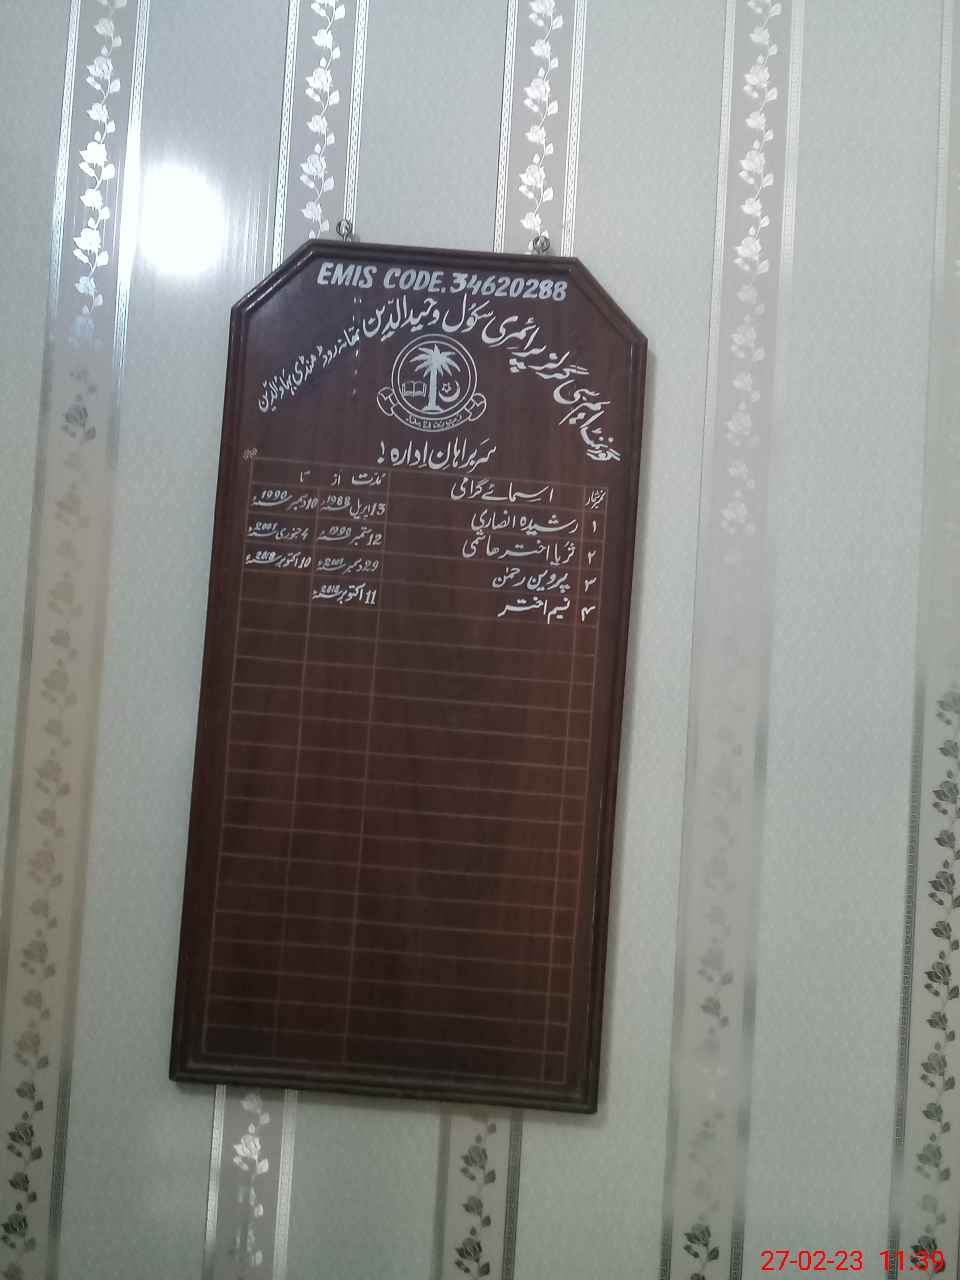 EMIS CODE.34620288
گورنمنٹ ایم سی گرلز پرائمری سکول وحیدالدین تھانہ روڈ منڈی بہاؤالدین
سربراہان ادارہ!
نمبر شمار اسمائے گرامی مدت از تا
۱ رشیدہ انصاری 13 اپریل 1988ء 10 دسمبر 1990ء
۲ ثریا اختر ھاشمی 12 ستمبر 1990ء 4 جنوری 2001ء
۳ پروین رحمٰن 29 دسمبر 2001ء 10 اکتوبر 2018ء
۴ نسیم اختر 11 اکتوبر 2018ء
27-02-23 11:39